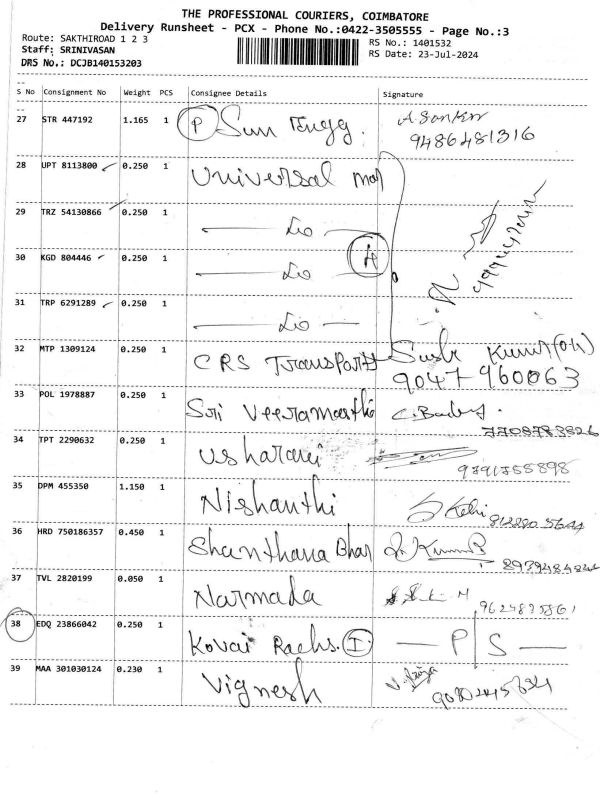 THE PROFESSIONAL COURIERS, COIMBATORE
Delivery Runsheet - PCX - Phone No.:0422-3505555 - Page No.:3
Route: SAKTHIROAD 1 2 3
RS No.: 1401532
Staff: SRINIVASAN
RS Date: 23-Jul-2024
DRS No.: DCJB140153203
S No Consignment No Weight PCS Consignee Details Signature
27 STR 447192 1.165 1 P Sun Engg. A. Sankar
9486481316
28 UPT 8113800 0.250 1 Universal
29 TRZ 54130866 0.250 1 — Do —
30 KGD 804446 0.250 1 — Do —
31 TRP 6291289 0.250 1 — Do —
32 MTP 1309124 0.250 1 CRS Transport
9047 960063
33 POL 1978887 0.250 1 Sri
7708783826
34 TPT 2290632 0.250 1 Usharani
9791755898
35 DPM 455350 1.150 1 Nishanthi
36 HRD 750186357 0.450 1 Shanthana Bhar
37 TVL 2820199 0.050 1 Narmada
38 EDQ 23866042 0.250 1 Kovai I — P S —
39 MAA 301030124 0.230 1 Vignesh